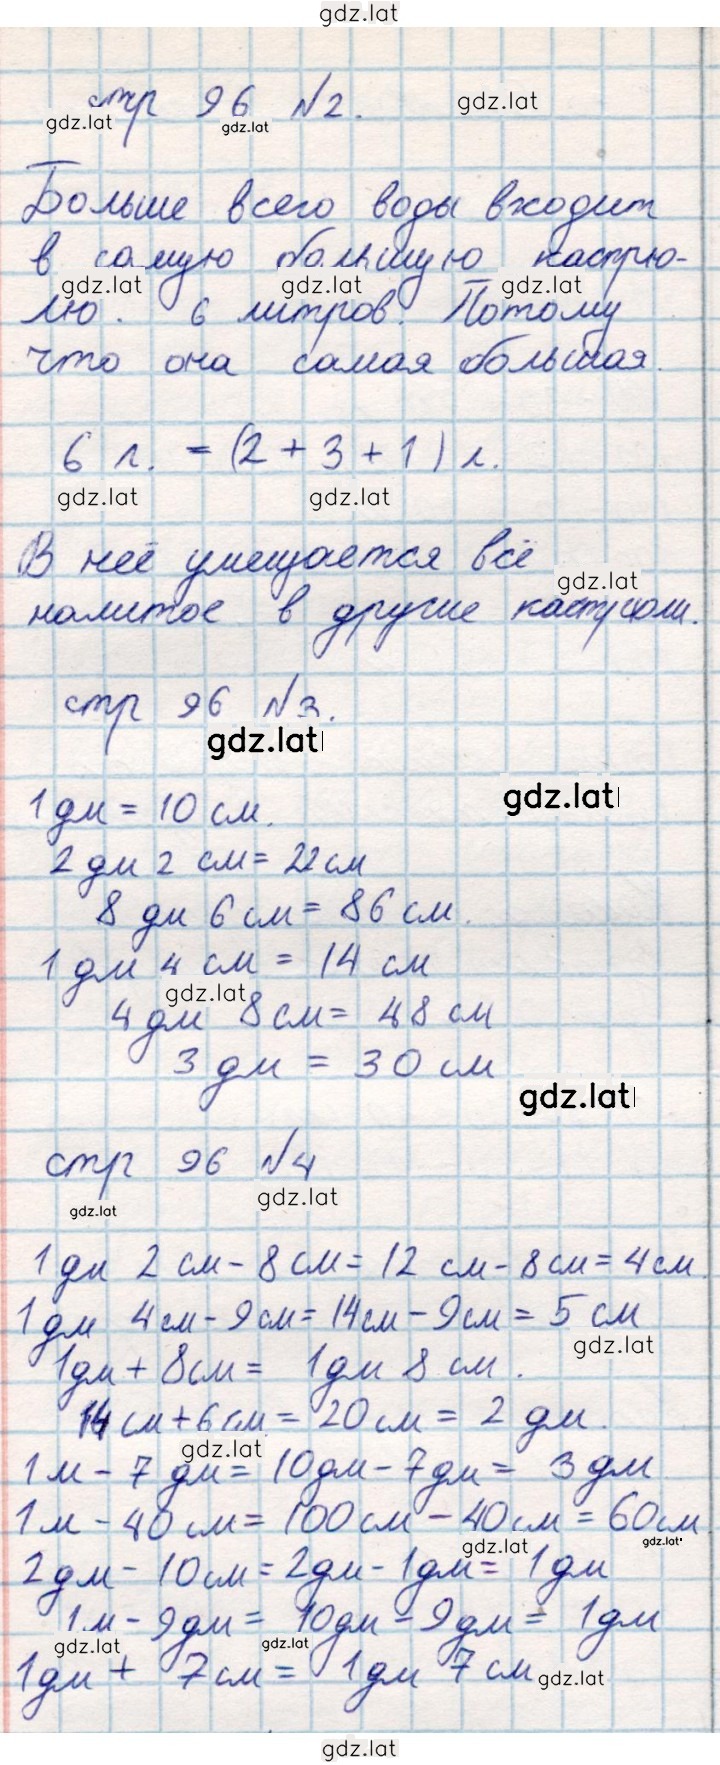 gdz.lat
стр 96 №2.
gdz.lat gdz.lat gdz.lat
Больше всего воды входит
в самую большую кастрю-
gdz.lat gdz.lat gdz.lat
лю. 6 литров. Потому
что она самая большая.
6 л. = (2 + 3 + 1) л.
gdz.lat gdz.lat
В неё умещается всё
gdz.lat
налитое в другие кастрюли.
стр 96 №3.
gdz.lat
gdz.lat
1 дм = 10 см.
2 дм 2 см = 22 см
8 дм 6 см = 86 см.
1 дм 4 см = 14 см
gdz.lat
4 дм 8 см = 48 см
3 дм = 30 см
gdz.lat
стр 96 №4
gdz.lat gdz.lat
1 дм 2 см - 8 см = 12 см - 8 см = 4 см.
1 дм 4 см - 9 см = 14 см - 9 см = 5 см
gdz.lat
1 дм + 8 см = 1 дм 8 см.
14 см + 6 см = 20 см = 2 дм.
gdz.lat
1 м - 7 дм = 10 дм - 7 дм = 3 дм
1 м - 40 см = 100 см - 40 см = 60 см
gdz.lat gdz.lat
2 дм - 10 см = 2 дм - 1 дм = 1 дм
1 м - 9 дм = 10 дм - 9 дм = 1 дм
gdz.lat gdz.lat
1 дм + 7 см = 1 дм 7 см
gdz.lat
gdz.lat